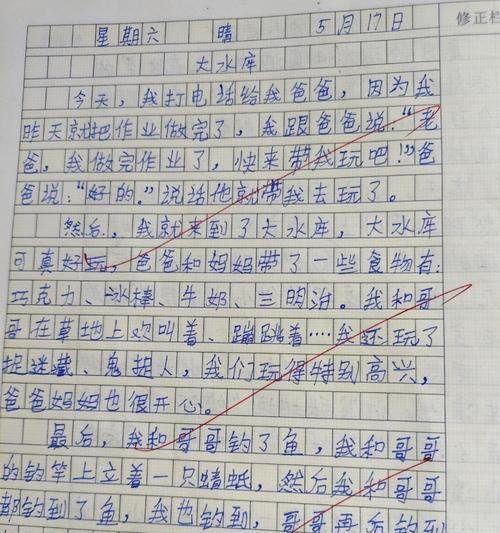 修正栏
星期六 晴 5月17日
大水库
今天，我打电话给我爸爸，因为我
昨天就把作业做完了，我跟爸爸说：“老
爸，我做完作业了，快来带我玩吧！”爸
爸说：“好的。”说话他就带我去玩了。
然后，我就来到了大水库，大水库
可真好玩，爸爸和妈妈带了一些食物有：
巧克力、冰棒、牛奶、三明治。我和哥
哥在草地上欢叫着、蹦跳着····我还玩了
捉迷藏、鬼捉人，我们玩得特别高兴，
爸爸妈妈也很开心。
最后，我和哥哥钓了鱼，我和哥哥
的钓竿上立着一只蜻蜓，然后我和哥哥
都钓到了鱼，我也钓到，哥哥再后钓到